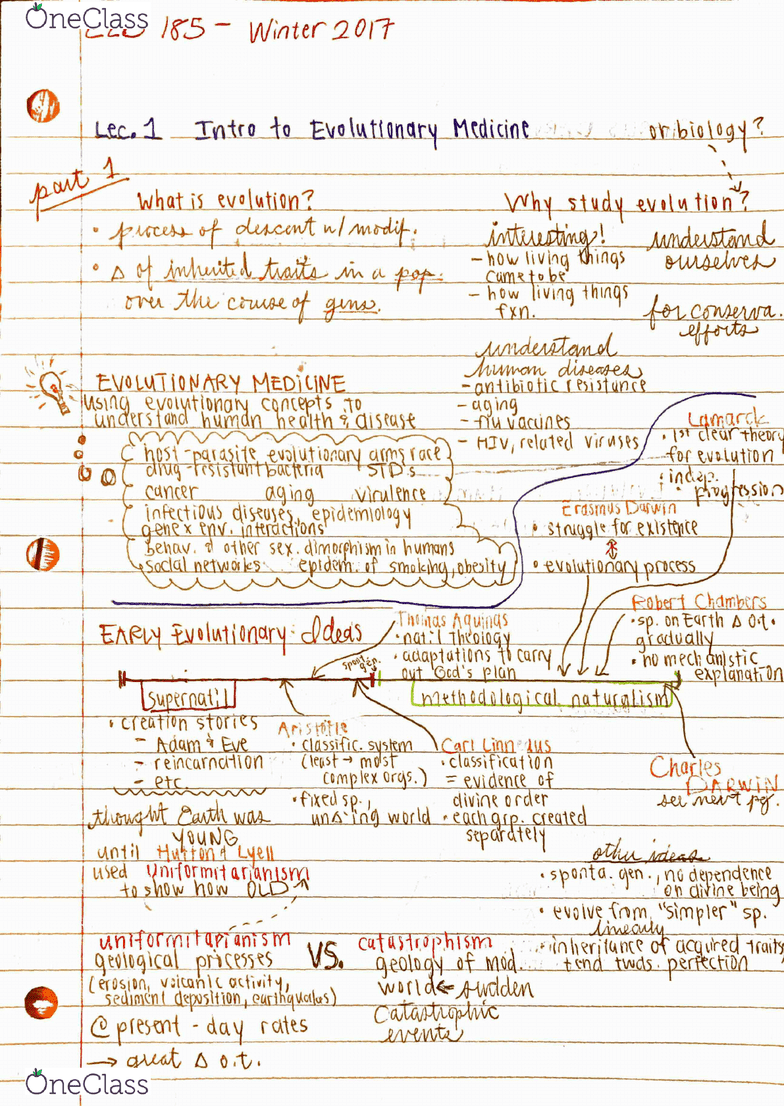 OneClass
185 - Winter 2017
Lec. 1 Intro to Evolutionary Medicine or biology?
part 1
What is evolution?
• process of descent w/ modif.
• Δ of inherited traits in a pop.
over the course of gens.
Why study evolution?
interesting!
- how living things
came to be
- how living things
fxn.
understand
ourselves
for conserva.
efforts
understand
human diseases
- antibiotic resistance
- aging
- flu vaccines
- HIV, related viruses
EVOLUTIONARY MEDICINE
using evolutionary concepts to
understand human health & disease
host-parasite evolutionary arms race
drug-resistant bacteria STD's
cancer aging virulence
infectious diseases, epidemiology
gene x env. interactions
behav. & other sex. dimorphism in humans
social networks epidem. of smoking, obesity
Lamarck
• 1st clear theory
for evolution
• indep.
progression
Erasmus Darwin
• struggle for existence
• evolutionary process
Robert Chambers
• sp. on Earth Δ o.t.
gradually
• no mechanistic
explanation
EARLY Evolutionary Ideas
Thomas Aquinas
• nat'l theology
• adaptations to carry
out God's plan
spont. gen.
supernat'l
methodological naturalism
• creation stories
- Adam & Eve
- reincarnation
- etc.
Aristotle
• classific. system
(least → most
complex orgs.)
• fixed sp.,
unΔ'ing world
Carl Linnaeus
• classification
= evidence of
divine order
• each grp. created
separately
Charles
DARWIN
see next pg.
thought Earth was
YOUNG
until Hutton & Lyell
used Uniformitarianism
to show how OLD
other ideas
• sponta. gen., no dependence
on divine being
• evolve from "simpler" sp.
linearly
• inheritance of acqured traits
tend twds. perfection
uniformitarianism
geological processes
(erosion, volcanic activity,
sediment deposition, earthquakes)
@ present-day rates
→ great Δ o.t.
VS.
catastrophism
geology of mod.
world ← sudden
catastrophic
events
OneClass